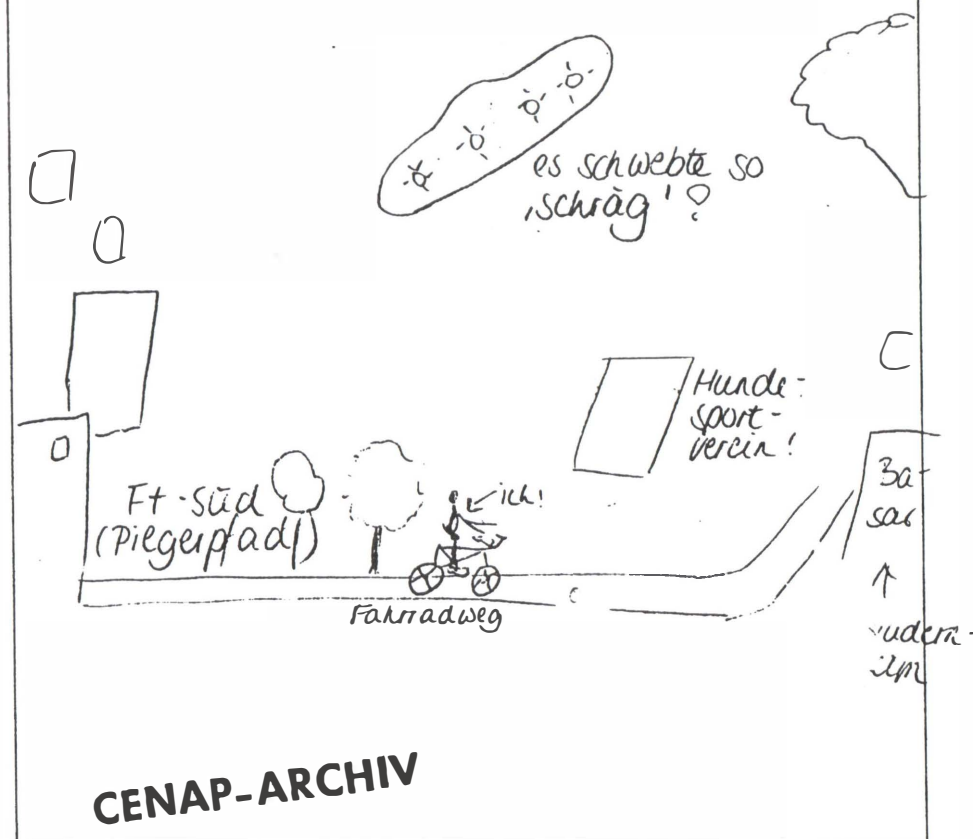 es schwebte so
'schräg'?
Hunde-
sport-
verein!
Ba-
sar
Ft-Süd
(Piegerpfad)
ich!
Fahrradweg
CENAP-ARCHIV